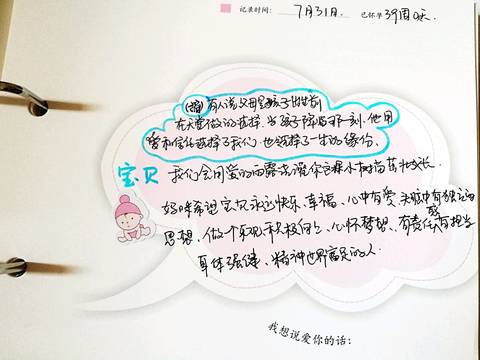 记录时间: 7月31日. 已怀孕39周0天.
(摘)有人说父母是孩子出生前
在天堂做的选择. 当孩子降临那一刻. 他用
爱和信任选择了我们. 也选择了一生的缘份.
宝贝 我们会用爱的雨露去灌你这棵小树苗茁壮成长.
妈咪希望宝贝永远快乐、幸福、心中有爱、头脑中有独立的
思想、做个乐观积极向上、心怀梦想、有责任有担当
身体强健、精神世界富足的人.
我想说爱你的话: